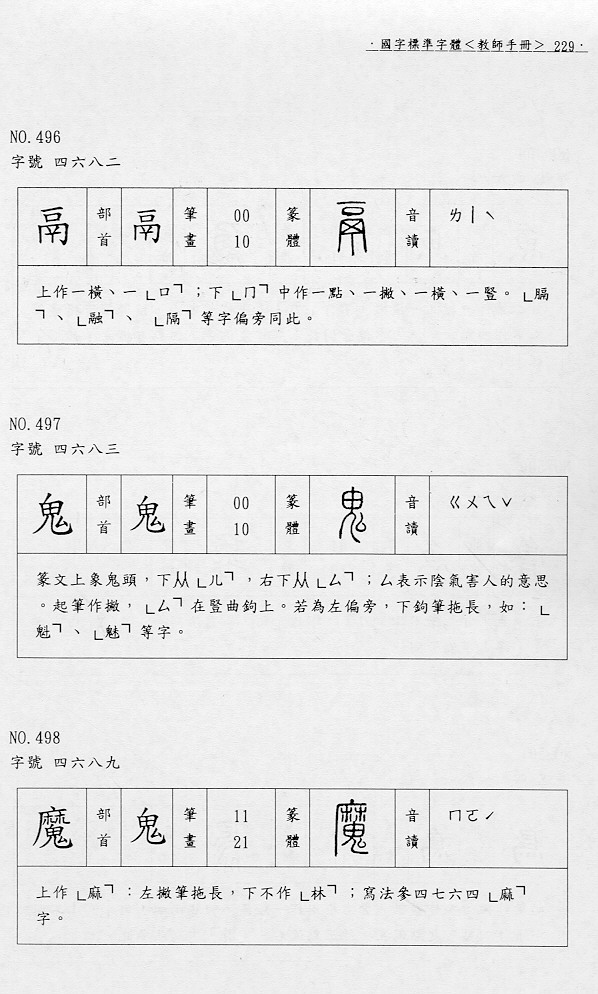 ‧國字標準字體＜教師手冊＞ 229‧
NO.496
字號 四六八二
鬲 部首 鬲 筆畫 00 10 篆體 鬲 音讀 ㄌㄧˋ
上作一橫、一「口」；下「冂」中作一點、一撇、一橫、一豎。「膈
」、「融」、「隔」等字偏旁同此。
NO.497
字號 四六八三
鬼 部首 鬼 筆畫 00 10 篆體 鬼 音讀 ㄍㄨㄟˇ
篆文上象鬼頭，下从「儿」，右下从「厶」；厶表示陰氣害人的意思
。起筆作撇，「厶」在豎曲鉤上。若為左偏旁，下鉤筆拖長，如：「
魁」、「魅」等字。
NO.498
字號 四六八九
魔 部首 鬼 筆畫 11 21 篆體 魔 音讀 ㄇㄛˊ
上作「麻」：左撇筆拖長，下不作「林」；寫法參四七六四「麻」
字。